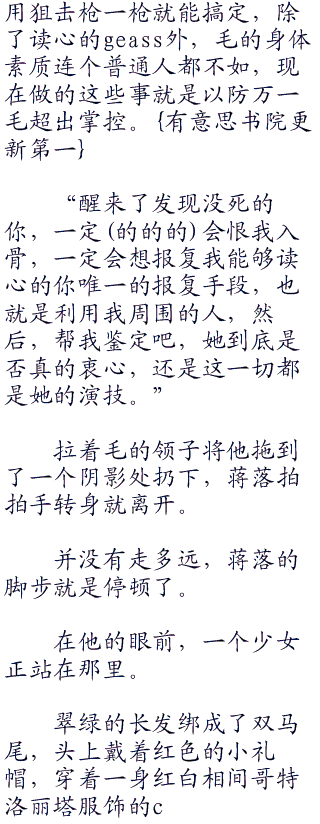 用狙击枪一枪就能搞定，除
了读心的geass外，毛的身体
素质连个普通人都不如，现
在做的这些事就是以防万一
毛超出掌控。{有意思书院更
新第一}
“醒来了发现没死的
你，一定(的的的)会恨我入
骨，一定会想报复我能够读
心的你唯一的报复手段，也
就是利用我周围的人，然
后，帮我鉴定吧，她到底是
否真的衷心，还是这一切都
是她的演技。”
拉着毛的领子将他拖到
了一个阴影处扔下，蒋落拍
拍手转身就离开。
并没有走多远，蒋落的
脚步就是停顿了。
在他的眼前，一个少女
正站在那里。
翠绿的长发绑成了双马
尾，头上戴着红色的小礼
帽，穿着一身红白相间哥特
洛丽塔服饰的c